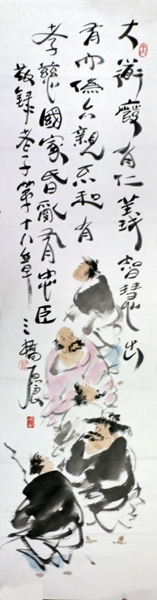 大衜廢有仁義智慧出
有大偽六親不和有
孝慈國家昏亂有忠臣
敬録老子第十八章